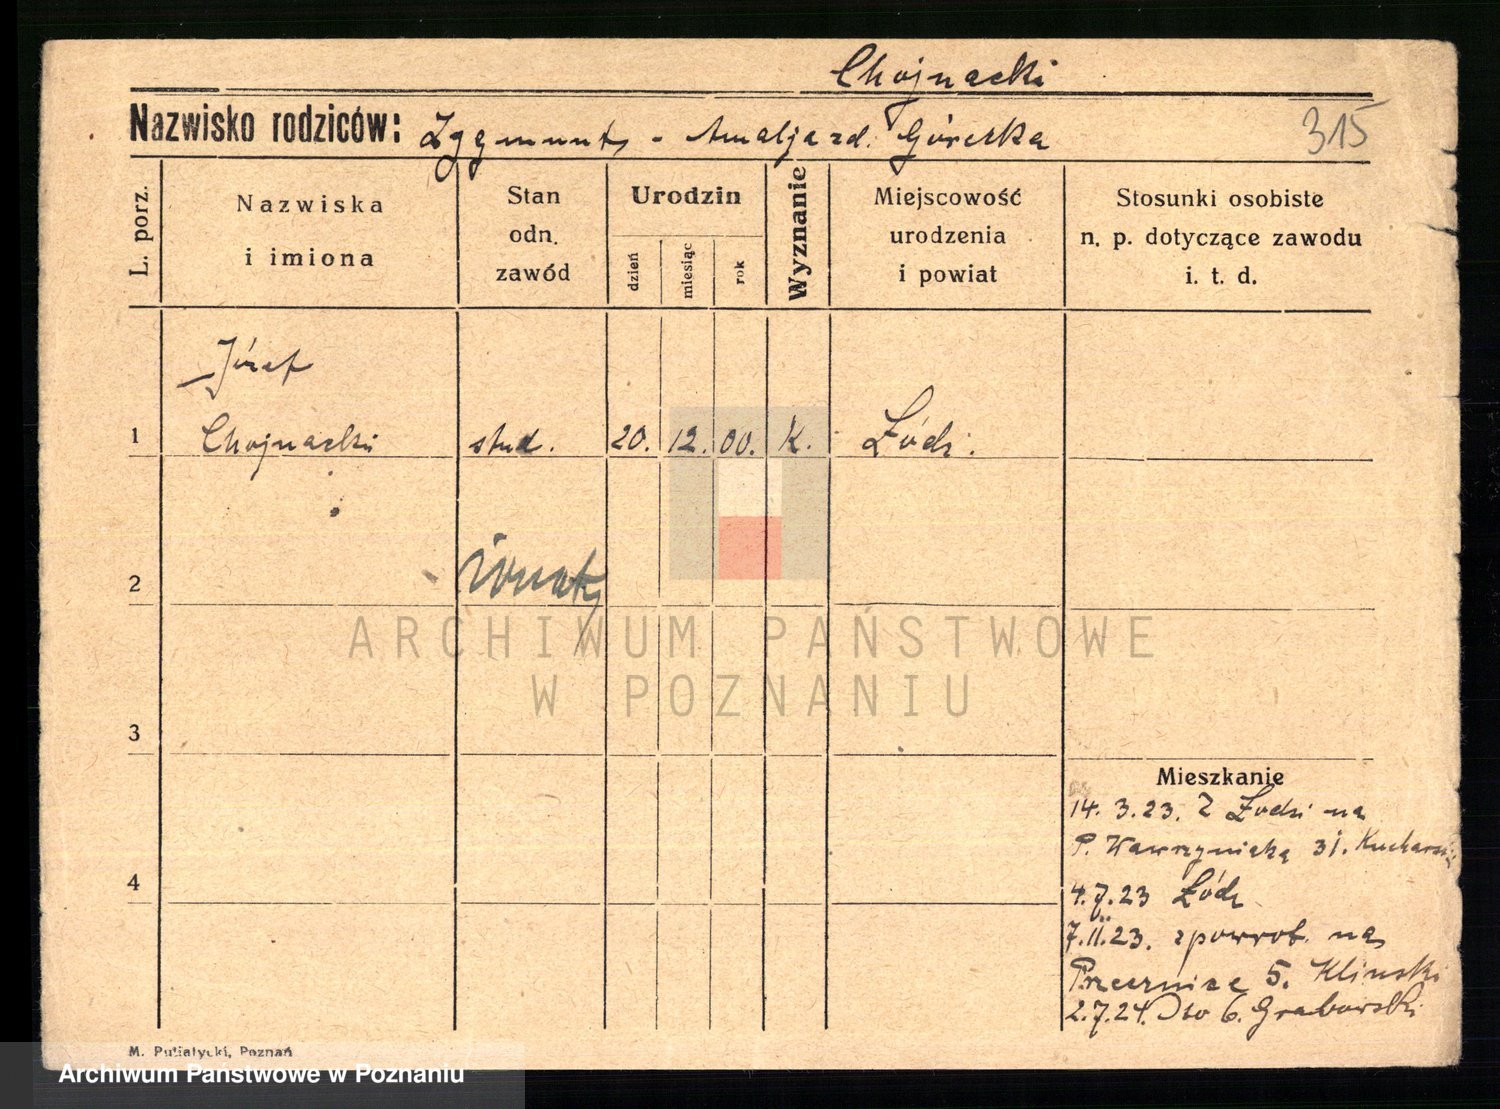 Chojnacki
Nazwisko rodziców: Zygmunt - Amalja zd. Górecka
315
L. porz.
Nazwiska
i imiona
Stan
odn.
zawód
Urodzin
dzień
miesiąc
rok
Wyznanie
Miejscowość
urodzenia
i powiat
Stosunki osobiste
n. p. dotyczące zawodu
i. t. d.
Józef
1 Chojnacki stud. 20. 12. 00. K. Łódz.
2 żonaty
3
4
Mieszkanie
14. 3. 23. Z Łodzi na
P. Wawrzyniaka 31. Kucharski
4.7.23 Łódz
7.II.23. zpowrot. na
Przecznice 5. Klinski
2.7.24. 6. Grabowski
M. Putiatycki, Poznań
ARCHIWUM PAŃSTWOWE
W POZNANIU
Archiwum Państwowe w Poznaniu